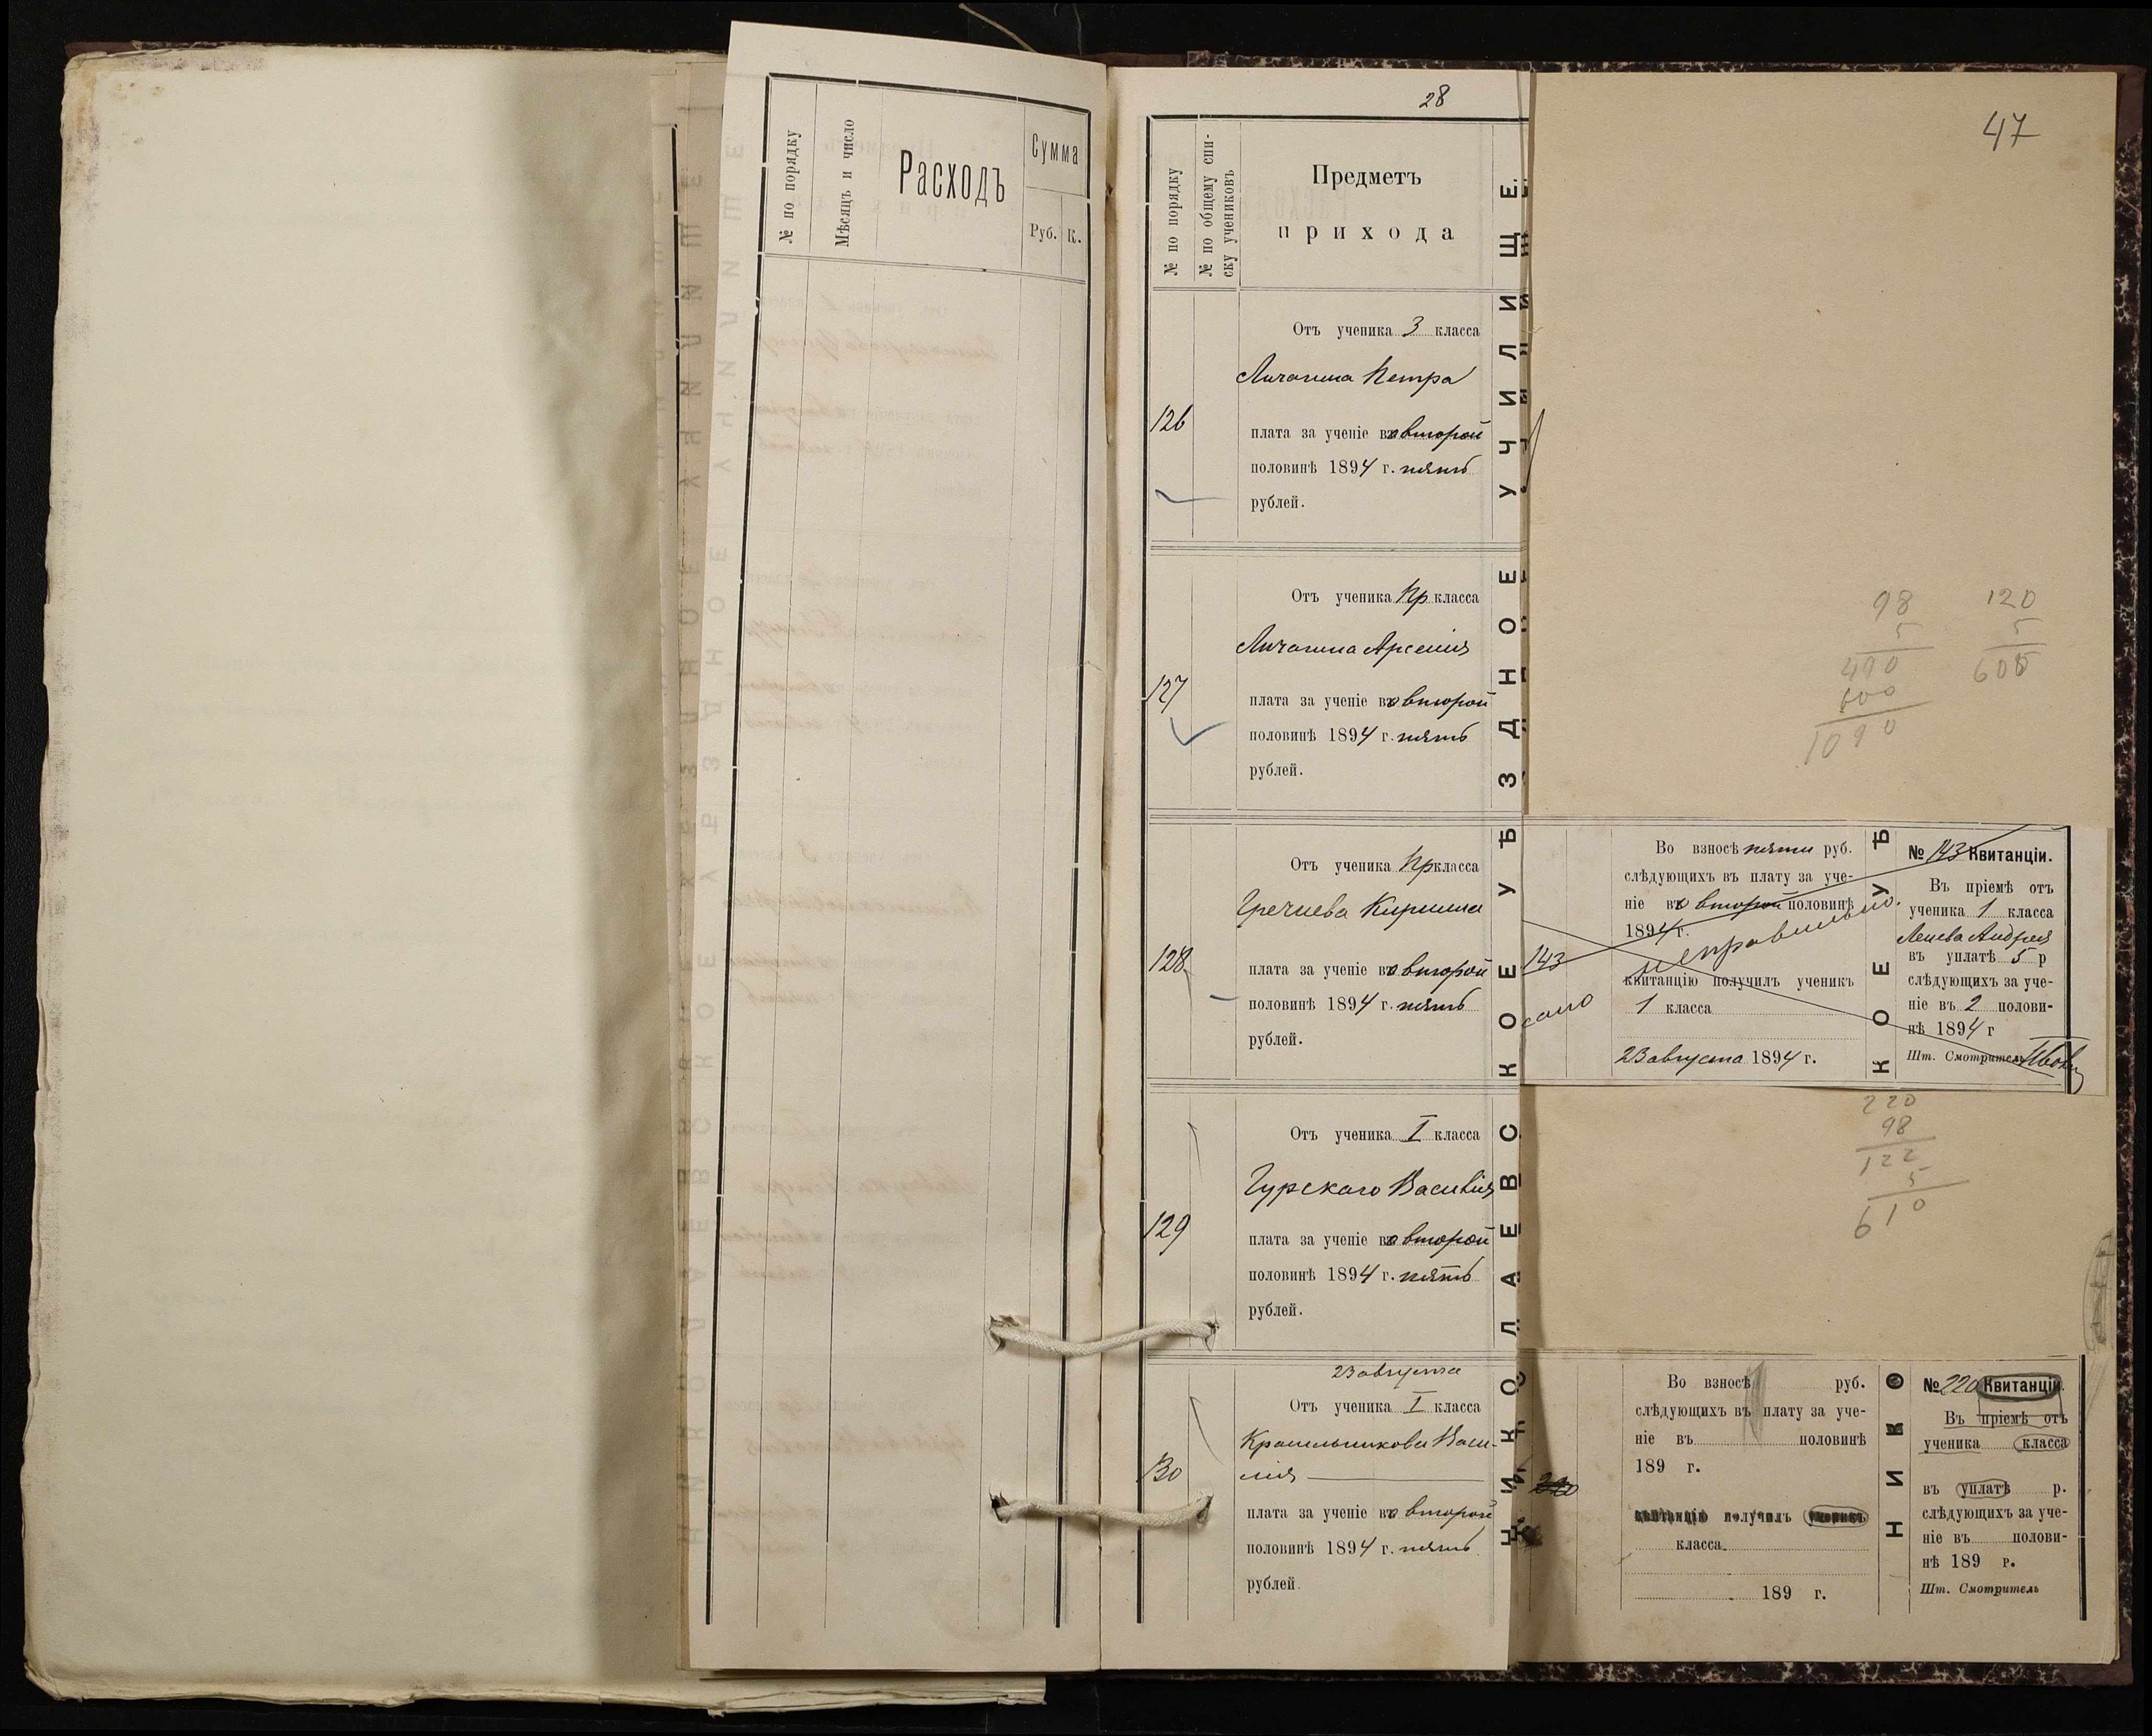 № по порядку
Мѣсяцъ и число
Расходъ
Сумма
Руб. К.
28
№ по порядку
№ по общему спи-
ску учениковъ
Предметъ
прихода
Отъ ученика 3 класса
Личанина Петра
126
плата за ученіе во второй
половинѣ 1894 г. пять
рублей.
Отъ ученика Пр класса
Личанина Арсенія
127
плата за ученіе во второй
половинѣ 1894 г. пять
рублей.
Отъ ученика Пр класса
Гречнева Кирилла
128
плата за ученіе во второй
половинѣ 1894 г. пять
рублей.
Отъ ученика I класса
Гурскаго Василія
129
плата за ученіе во второй
половинѣ 1894 г. пять
рублей.
23 августа
Отъ ученика I класса
Красильникова Васи-
лія
130
плата за ученіе во второй
половинѣ 1894 г. пять
рублей.
НИКОЛАЕВСКОЕ УѢЗДНОЕ УЧИЛИЩЕ.
47
98
5
490
600
1090
120
5
600
143
Во взносѣ пяти руб.
слѣдующихъ въ плату за уче-
ніе во второй половинѣ
1894 г.
неправильно.
квитанцію получилъ ученикъ
1 класса
23 августа 1894 г.
КОЕ УѢ
№ 143 Квитанціи.
Въ пріемѣ отъ
ученика 1 класса
Андрея
въ уплатѣ 5 р
слѣдующихъ за уче-
ніе въ 2 полови-
нѣ 1894 г
Шт. Смотритель
220
98
122
5
610
220
Во взносѣ руб.
слѣдующихъ въ плату за уче-
ніе въ половинѣ
189 г.
квитанцію получилъ ученикъ
класса
189 г.
НИКО
№ 220 Квитанціи.
Въ пріемѣ отъ
ученика класса
въ уплатѣ р.
слѣдующихъ за уче-
ніе въ полови-
нѣ 189 г.
Шт. Смотритель